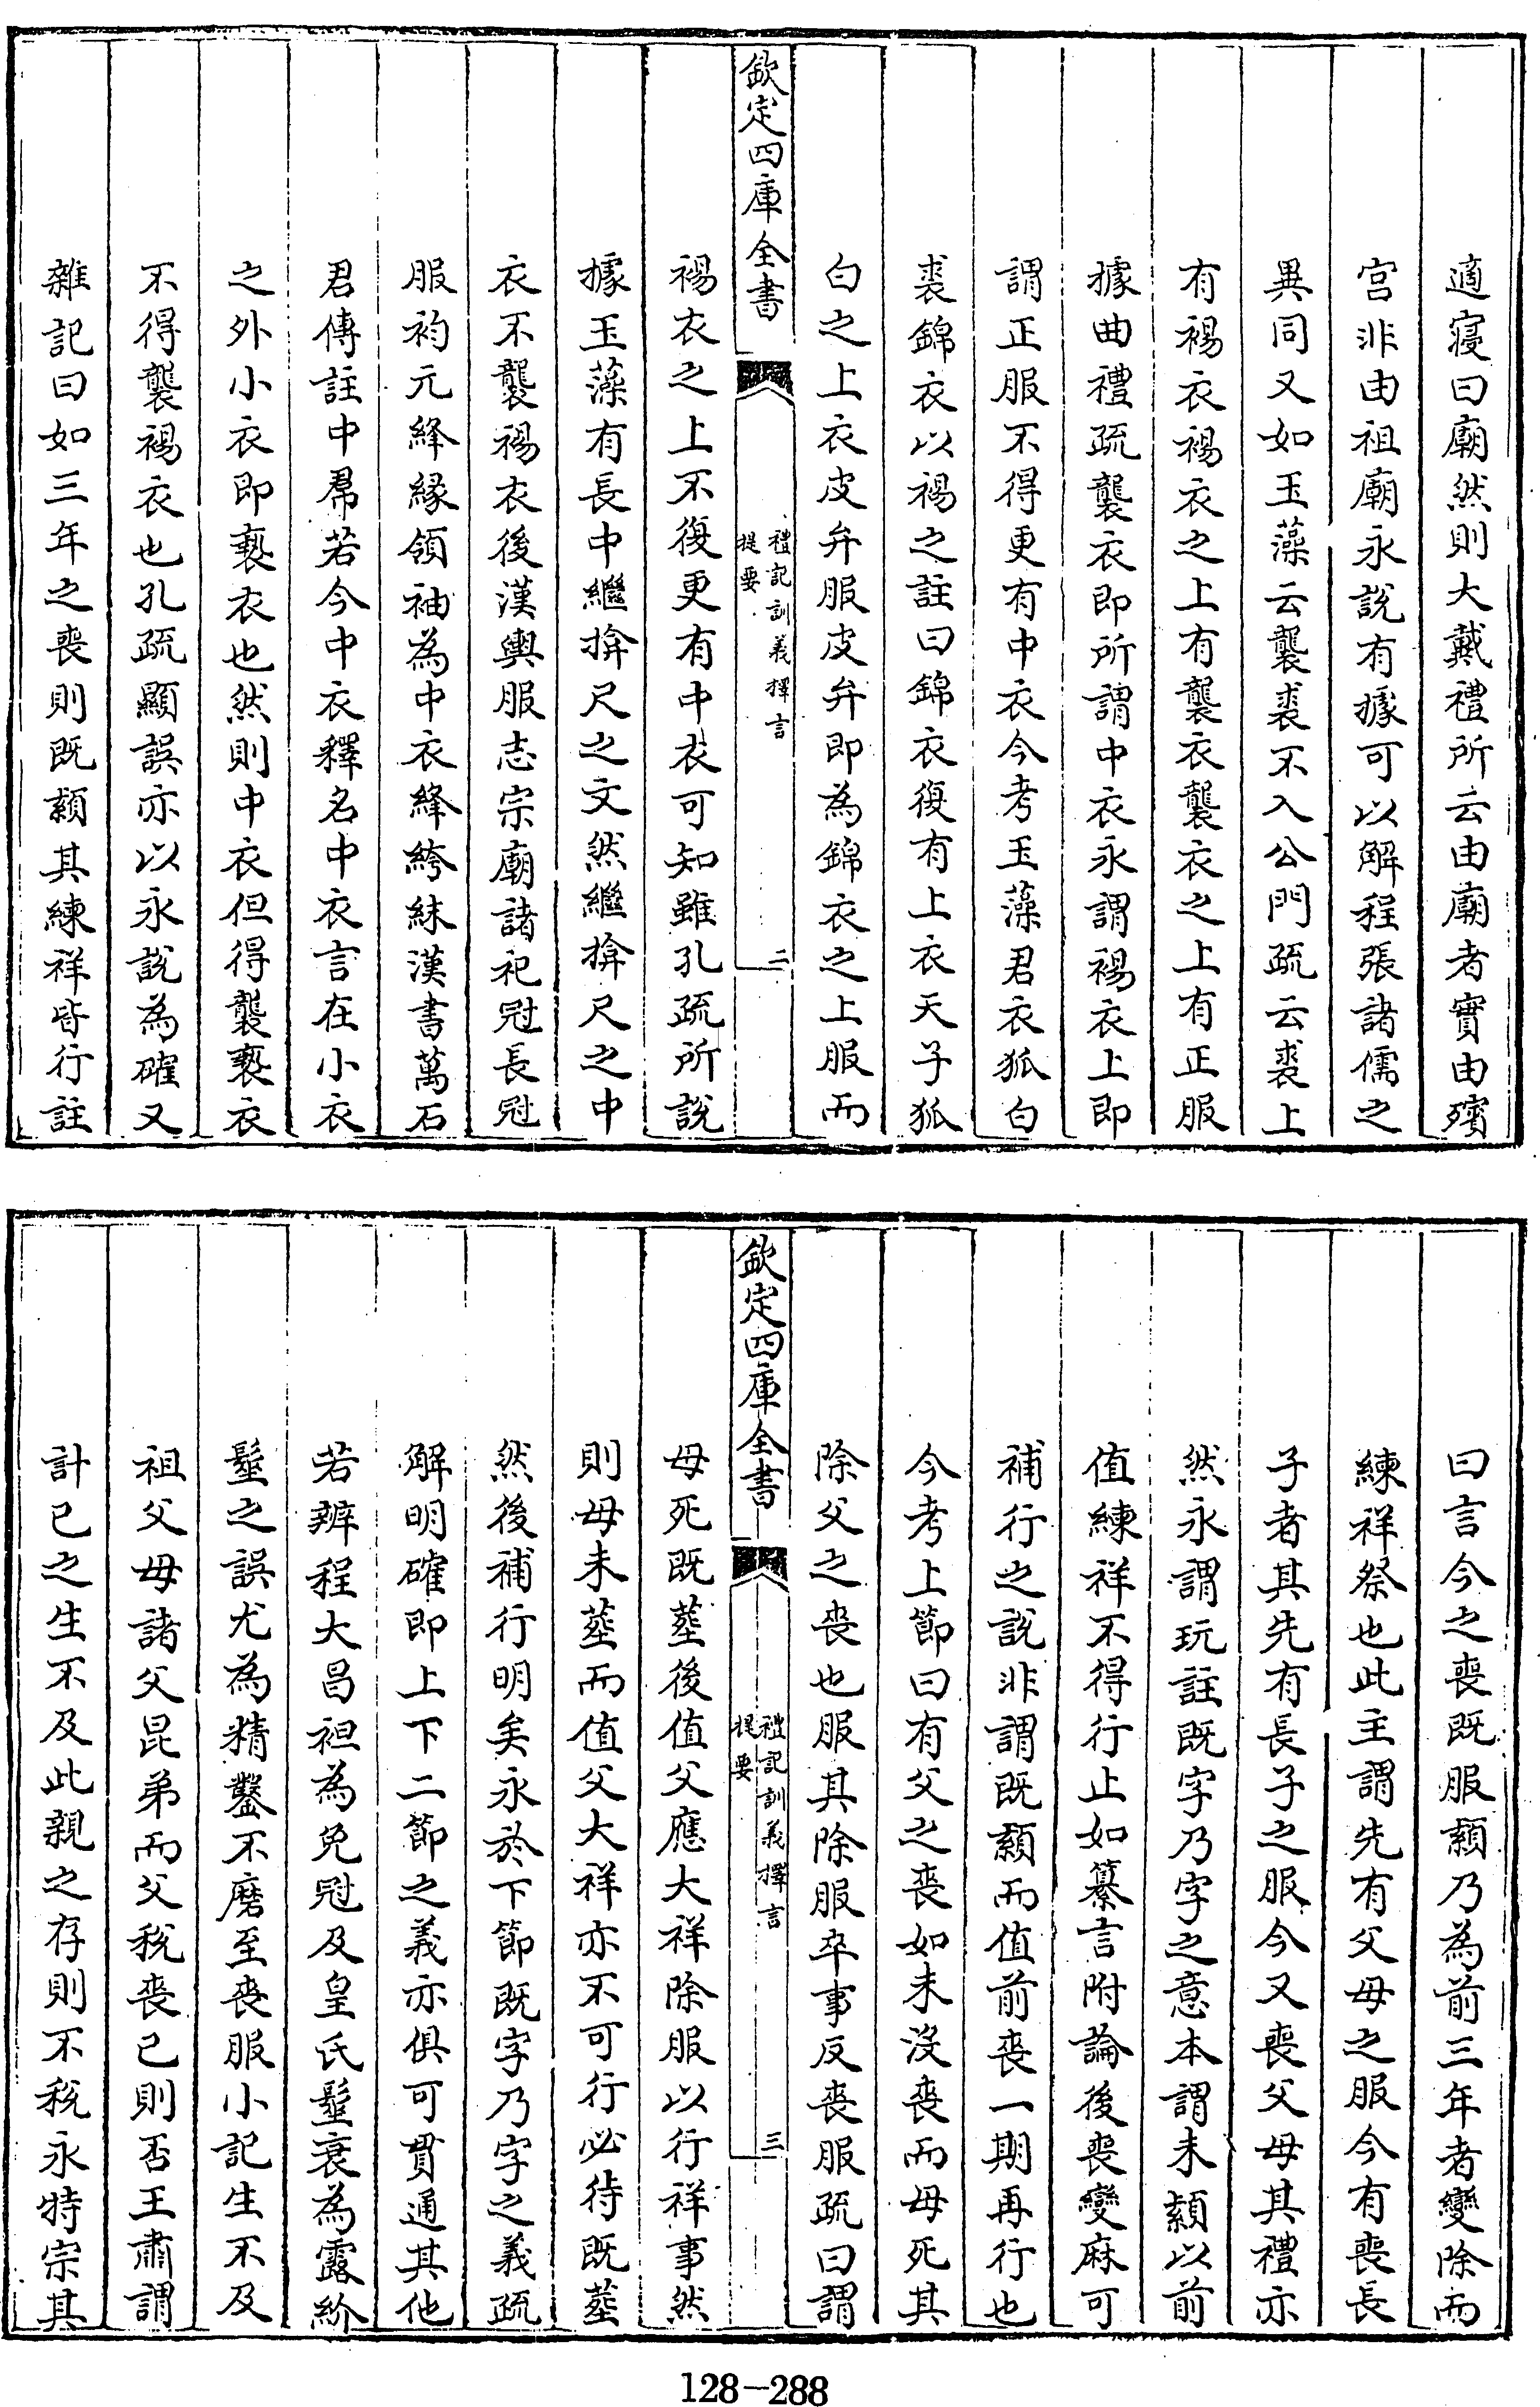 適寢曰廟然則大戴禮所云由廟者實由殯
宮非由祖廟永說有據可以解程張諸儒之
異同又如玉藻云襲裘不入公門疏云裘上
有裼衣裼衣之上有襲衣襲衣之上有正服
據曲禮疏襲衣即所謂中衣永謂裼衣上即
謂正服不得更有中衣今考玉藻君衣狐白
裘錦衣以裼之註曰錦衣復有上衣天子狐
白之上衣皮弁服皮弁即為錦衣之上服而
欽定四庫全書
禮記訓義擇言
提要
二
裼衣之上不復更有中衣可知雖孔疏所說
據玉藻有長中繼揜尺之文然繼揜尺之中
衣不襲裼衣後漢輿服志宗廟諸祀冠長冠
服袀元絳緣領袖為中衣絳絝絉漢書萬石
君傳註中帬若今中衣釋名中衣言在小衣
之外小衣即褻衣也然則中衣但得襲褻衣
不得襲裼衣也孔疏顯誤亦以永說為確又
雜記曰如三年之喪則既顈其練祥皆行註
曰言今之喪既服顈乃為前三年者變除而
練祥祭也此主謂先有父母之服今有喪長
子者其先有長子之服今又喪父母其禮亦
然永謂玩註既字乃字之意本謂未顈以前
值練祥不得行止如纂言附論後喪變麻可
補行之說非謂既顈而值前喪一期再行也
今考上節曰有父之喪如未沒喪而母死其
除父之喪也服其除服卒事反喪服疏曰謂
欽定四庫全書
禮記訓義擇言
提要
三
母死既葬後值父應大祥除服以行祥事然
則母未葬而值父大祥亦不可行必待既葬
然後補行明矣永於下節既字乃字之義疏
解明確即上下二節之義亦俱可貫通其他
若辨程大昌袒為免冠及皇氏髽衰為露紒
髽之誤尤為精鑿不磨至喪服小記生不及
祖父母諸父昆弟而父稅喪己則否王肅謂
計己之生不及此親之存則不稅永特宗其
128-288